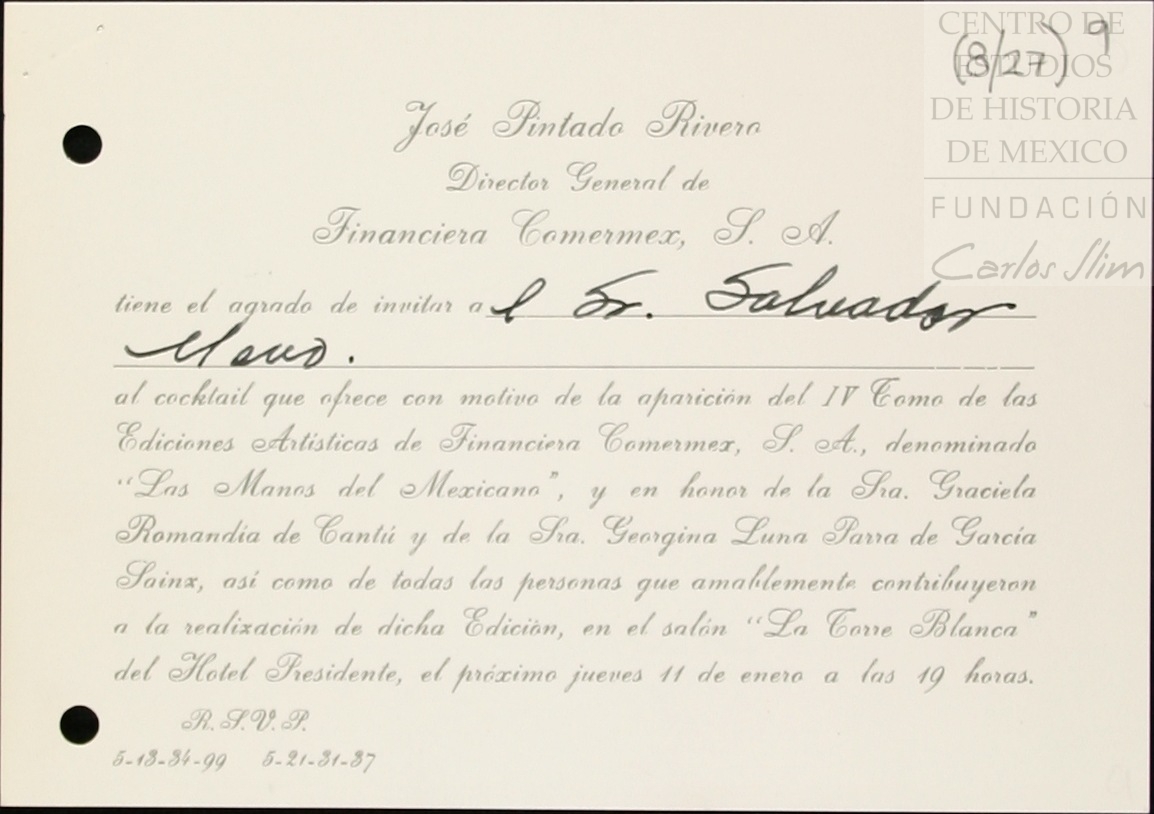 CENTRO DE
ESTUDIOS
DE HISTORIA
DE MEXICO
FUNDACIÓN
Carlos Slim
(8/27) 9
José Pintado Rivero
Director General de
Financiera Comermex, S. A.
tiene el agrado de invitar a l Sr. Salvador
al cocktail que ofrece con motivo de la aparición del IV Tomo de las
Ediciones Artísticas de Financiera Comermex, S. A., denominado
“Las Manos del Mexicano”, y en honor de la Sra. Graciela
Romandía de Cantú y de la Sra. Georgina Luna Parra de García
Sainz, así como de todas las personas que amablemente contribuyeron
a la realización de dicha Edición, en el salón “La Torre Blanca”
del Hotel Presidente, el próximo jueves 11 de enero a las 19 horas.
R. S. V. P.
5-13-34-99 5-21-31-37